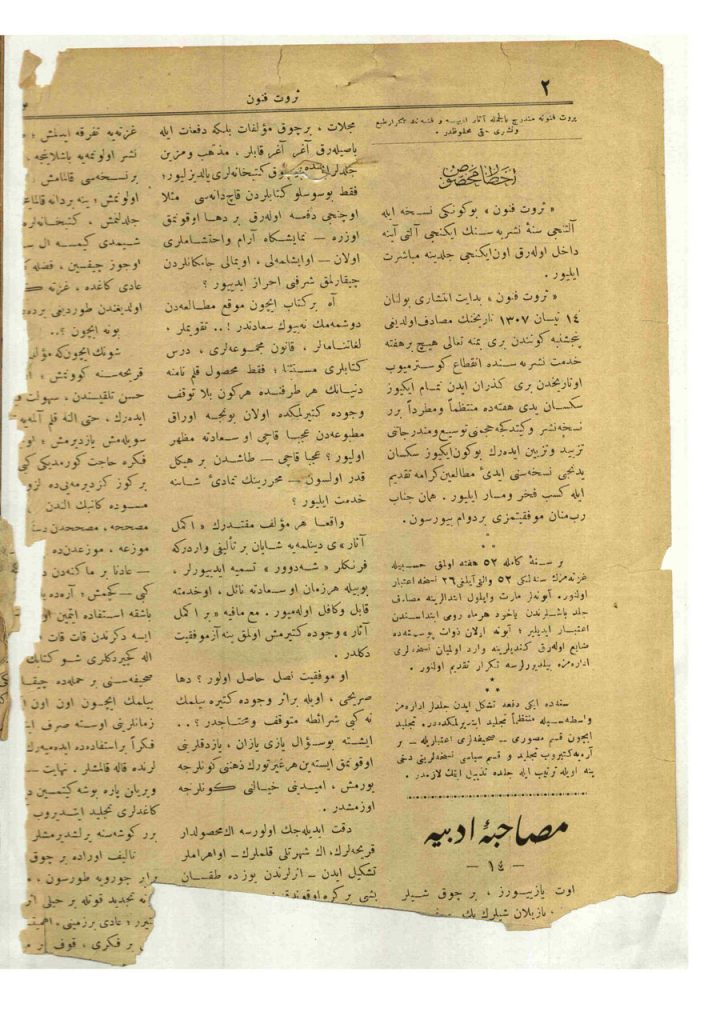 ٢
ثروت فنون
ثروت فنونه مندرج بالجمله آثار ادبیه و فنیه نك تكرار طبع
ونشری حق محفوظدر .
اخطار مخصوص
« ثروت فنون » بوكونكی نسخه ایله
آلتنجی سنۀ نشریه سنك ایكنجی آلتی آینه
داخل اوله رق اون ایكنجی جلدینه مباشرت
ایلیور .
« ثروت فنون » بدایت انتشاری بولنان
١٤ نیسان ١٣٠٧ تاریخنك مصادف اولدیغی
پنجشنبه كونندن بری بمنه تعالی هیچ بر هفته
خدمت نشریه سنده انقطاع كوسترمیوب
اوتاریخدن بری كذران ایدن تمام ایكیوز
سكسان یدی هفته ده منتظماً ومطرداً برر
نسخه نشر وكیتدكجه حجمنی توسیع ومندرجاتنی
تزیید وتزیین ایده رك بوكون ایكیوز سكسان
یدنجی نسخه سنی ایدئ مطالعین كرامه تقدیم
ایله كسب فخر ومسار ایلیور . همان جناب
رب منان موفقیتمزی بردوام بیورسون .
* *
بر سنۀ كامله ٥٢ هفته اولمق حسبیله
غزته مزك سنه لكی ٥٢ والتی آیلغی ٢٦ نسخه اعتبار
اولنور. آبونه لر مارت وایلول ابتدالرینه مصادف
جلد باشلرندن یاخود هرماه رومی ابتداسندن
اعتبار ایدیلیر ؛ آبونه اولان ذوات پوسته ده
ضایع اوله رق كندیلرینه وارد اولمیان نسخه لری
اداره مزه بیلدیررلرسه تكرار تقدیم اولنور .
* *
*
سنه ده ایكی دفعه تشكل ایدن جلدلر اداره مز
واسطه سیله منتظماً تجلید ایتدیرلمكده در. تجلید
ایچون قسم مصوری ــ صحیفه لری اعتباریله ــ بر
آرایه كتیروب تجلید و قسم سیاسی نسخه لرینی دخی
ینه اویله ترتیب ایله جلده تذییل ایتمك لازمدر .
مصاحبۀ ادبیه
— ١٤ —
اوت یازییورز ، بر چوق شیلر
، یازیلان شیلرك پك
مجلات ، بر چوق مؤلفات بلكه دفعات ایله
باصیله رق آغر آغر قابلر ، مذهب ومزین
جلدلر ایچنده بر چوق كتبخانه لری یالدیزلیور ؛
فقط بوسوسلو كتابلردن قاچ دانه سی مثلا
اوچنجی دفعه اوله رق بر دها اوقونمق
اوزره — نمایشكاه آرام واحتشاملری
اولان — اوایشله لی ، اویمالی جامكانلردن
چیقارلمق شرفنی احراز ایدییور ؟
آه بر كتاب ایچون موقع مطالعه دن
دوشمه مك نه بیوك سعادتدر !.. تقویملر .
لغاتنامه لر ، قانون مجموعه لری ، درس
كتابلری مستثنا ؛ فقط محصول قلم نامنه
دنیانك هر طرفنده هركون بلا توقف
وجوده كتیرلمكده اولان بونجه اوراق
مطبوعه دن عجبا قاچی او سعادته مظهر
اولیور ؟ عجبا قاچی — طاشدن بر هیكل
قدر اولسون — محررینك تمادئ شاننه
خدمت ایلیور ؟
واقعا هر مؤلف مقتدرك « اكمل
آثار » ی دینلمه یه شایان بر تألیفی واردر كه
فرنكلر « شه دوور » تسمیه ایدییورلر .
بوبیله هر زمان او سعادته نائل ، اوخدمته
قابل وكافل اوله میور . مع مافیه « بر اكمل
آثار » وجوده كتیرمش اولمق ینه آز موفقیت
دكلدر .
او موفقیت نصل حاصل اولور ؟ دها
صریحی ، اویله بر اثر وجوده كتیره بیلمك
نه كبی شرائطه متوقف ومحتاجدر ؟..
ایشته بوسؤال یازی یازان ، یازدقلرینی
اوقوتمق ایسته ین هر غیرتورك ذهنی كونلرجه
یورمش ، امیدینی خیالنی كونلرجه
اوزمشدر .
دقت ایدیله جك اولورسه اك محصولدار
قریحه لرك، اك شهرتلی قلملرك ــ اوا هراملر
تشكیل ایدن ــ اثرلرندن یوزده طقسان
بشی بر كره اوقوندقدن
غزته یه تفرقه ایدلمش ؛
نشر اولونمه یه باشلانجه ،
بر نسخه سی قالمامش
اولونمش ؛ ینه بر دانه قالمامش
جلدلنمش . كتبخانه لره
شیمدی كیمسه ال
اوجوز چیقسین ، فضله
عادی كاغده ، غزته
اولدیغندن طوردیغی یرده
بونه ایچون ؟..
شونك ایچون كه مؤلف
قریحه سنه كوونمش ؛
حسن تلقیسندن ، سهولت
ایده رك ، حتی الته قلم آلمه یه
سویله مش یازدیرمش ؛
فكره حاجت كورمدیكی كبی
بر كوز كزدیرمه یی ده
مسوده كاتبك الندن
مصححه ، مصححدن
موزعه ، موزعدن ده
— عادتا بر ماكنه دن
كبی — كچمش ؛ آره ده
باشقه استفاده ایتمین
ایسه دكرندن قات قات
اله كچیردكلری شو كتابك
صحیفه سنی بر حمله ده
بیلمك ایچون اون اون
زمانلرینی اوسته صرف
فكراً بر استفاده ده ایده میه رك
لرنده قاله قالمشلر . نهایت —
ویریلن پاره بوشه كیتمسین
كاغدلری تجلید ایتدیروب
برر كوشه سنه یرلشدیرمشلر
تالیف اوراده بر چوق
برابر چورویه طورسون ،
ینه تجدید قوتله بر حیلی
؛ عادی بر زمینی. اهمیت
بر فكری ، قوف